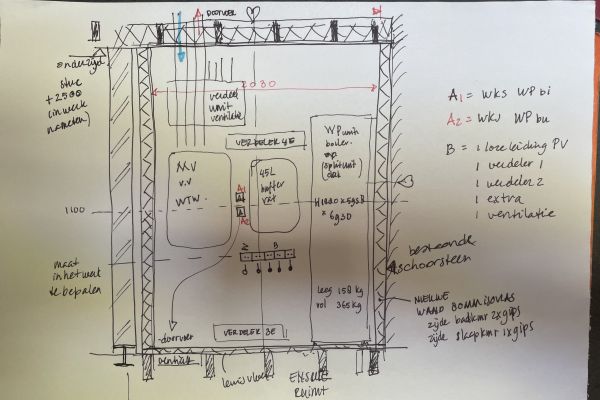 DOORVOER
onderzijde
+2500
(in werk
nameten)
2030
verdeel
unit
ventilatie
VERDELER 4E
WP unit
boiler.
(splitunit
dak)
MV
v.v
WTW.
45L
buffer
vat
A1
A2
H1880 x 595 B
* 6930
1100
Z B
maat
in het werk
te bepalen
leeg 158 kg
vol 365 kg
VERDELER 3E
doorvoer
ventilatie
lewisvloer
ENSUITE
RUIMT
A1 = WKS WP bi
A2 = WKV WP bu
B = 1 loze leiding PV
1 verdeler 1
1 verdeler 2
1 extra
1 ventilatie
bestaande
schoorsteen
NIEUWE
WAND
zijde badkmr 2xgips
zijde slaapkmr 1xgips